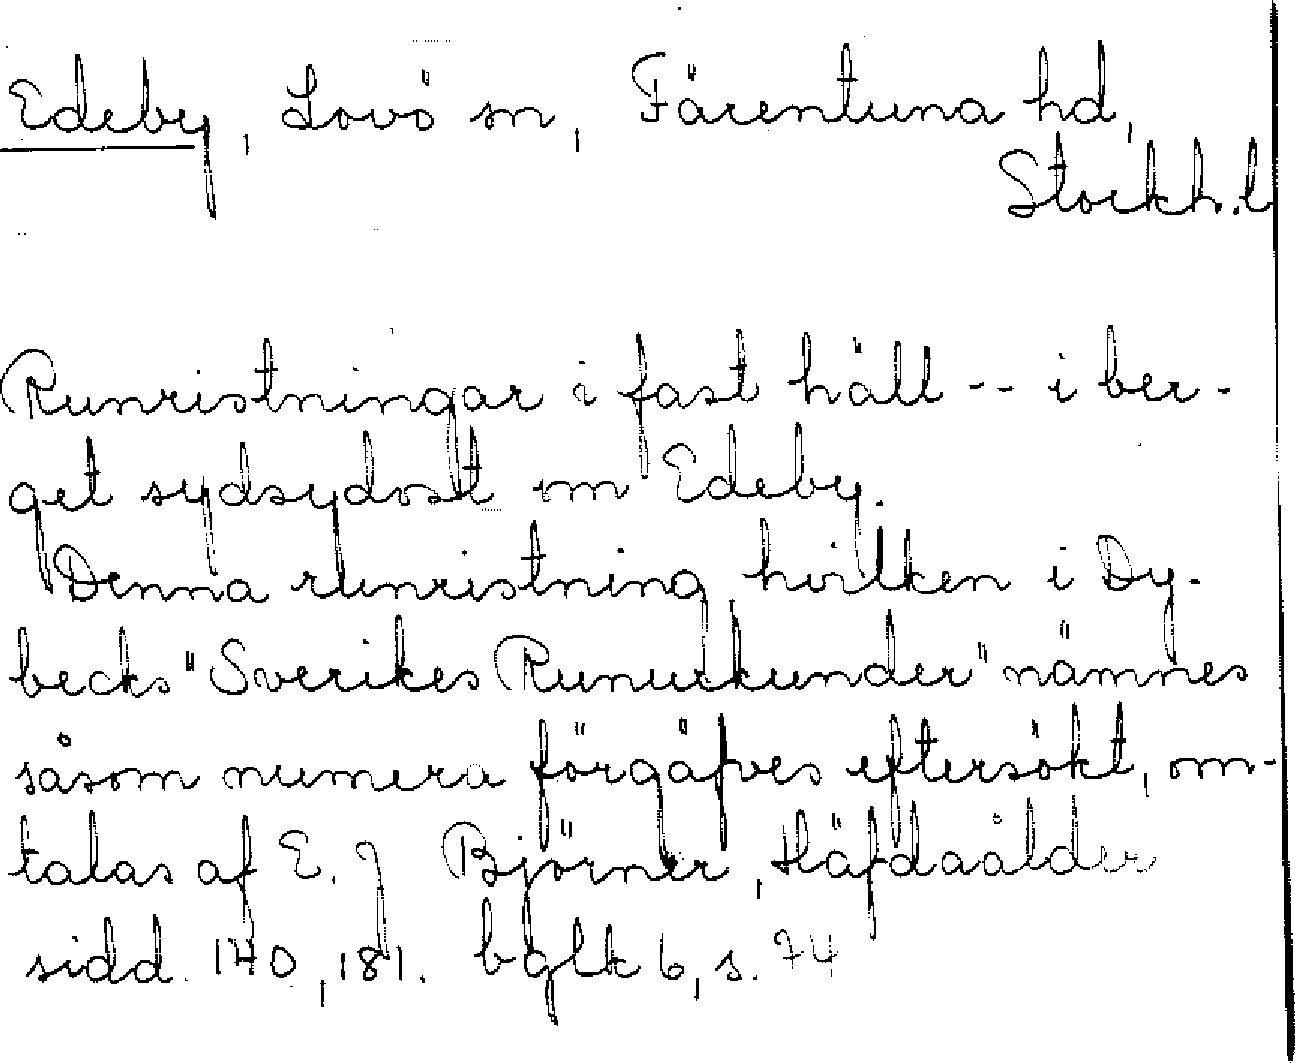 Edeby, Lovö sn, Färentuna hd,
Stockh. l
Runristningar i fast häll -- i ber-
get sydsydost om Edeby.
Denna runristning, hvilken i Dy-
becks "Sverikes Runurkunder" nämnes
såsom numera förgäfves eftersökt, om-
talas af E. J Björner, Häfdaålder
sidd. 140, 181. bglk 6, s. 74